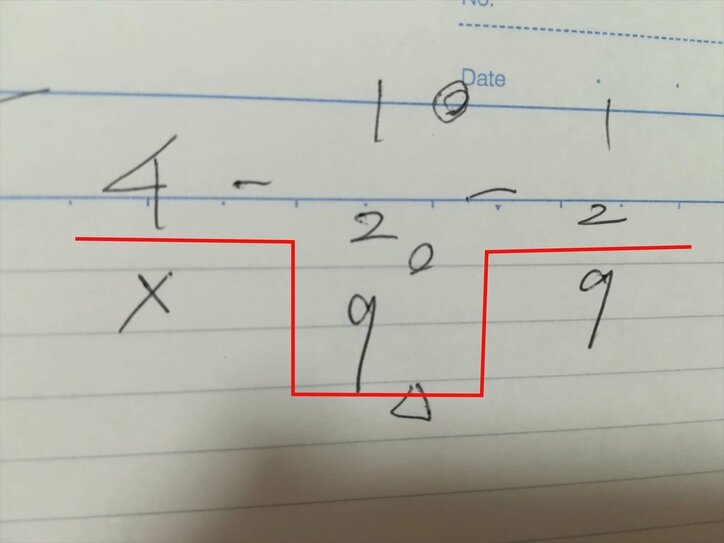 No.
Date
1 ◎ 1
4 - 2 - 2
○
x 9 9
△